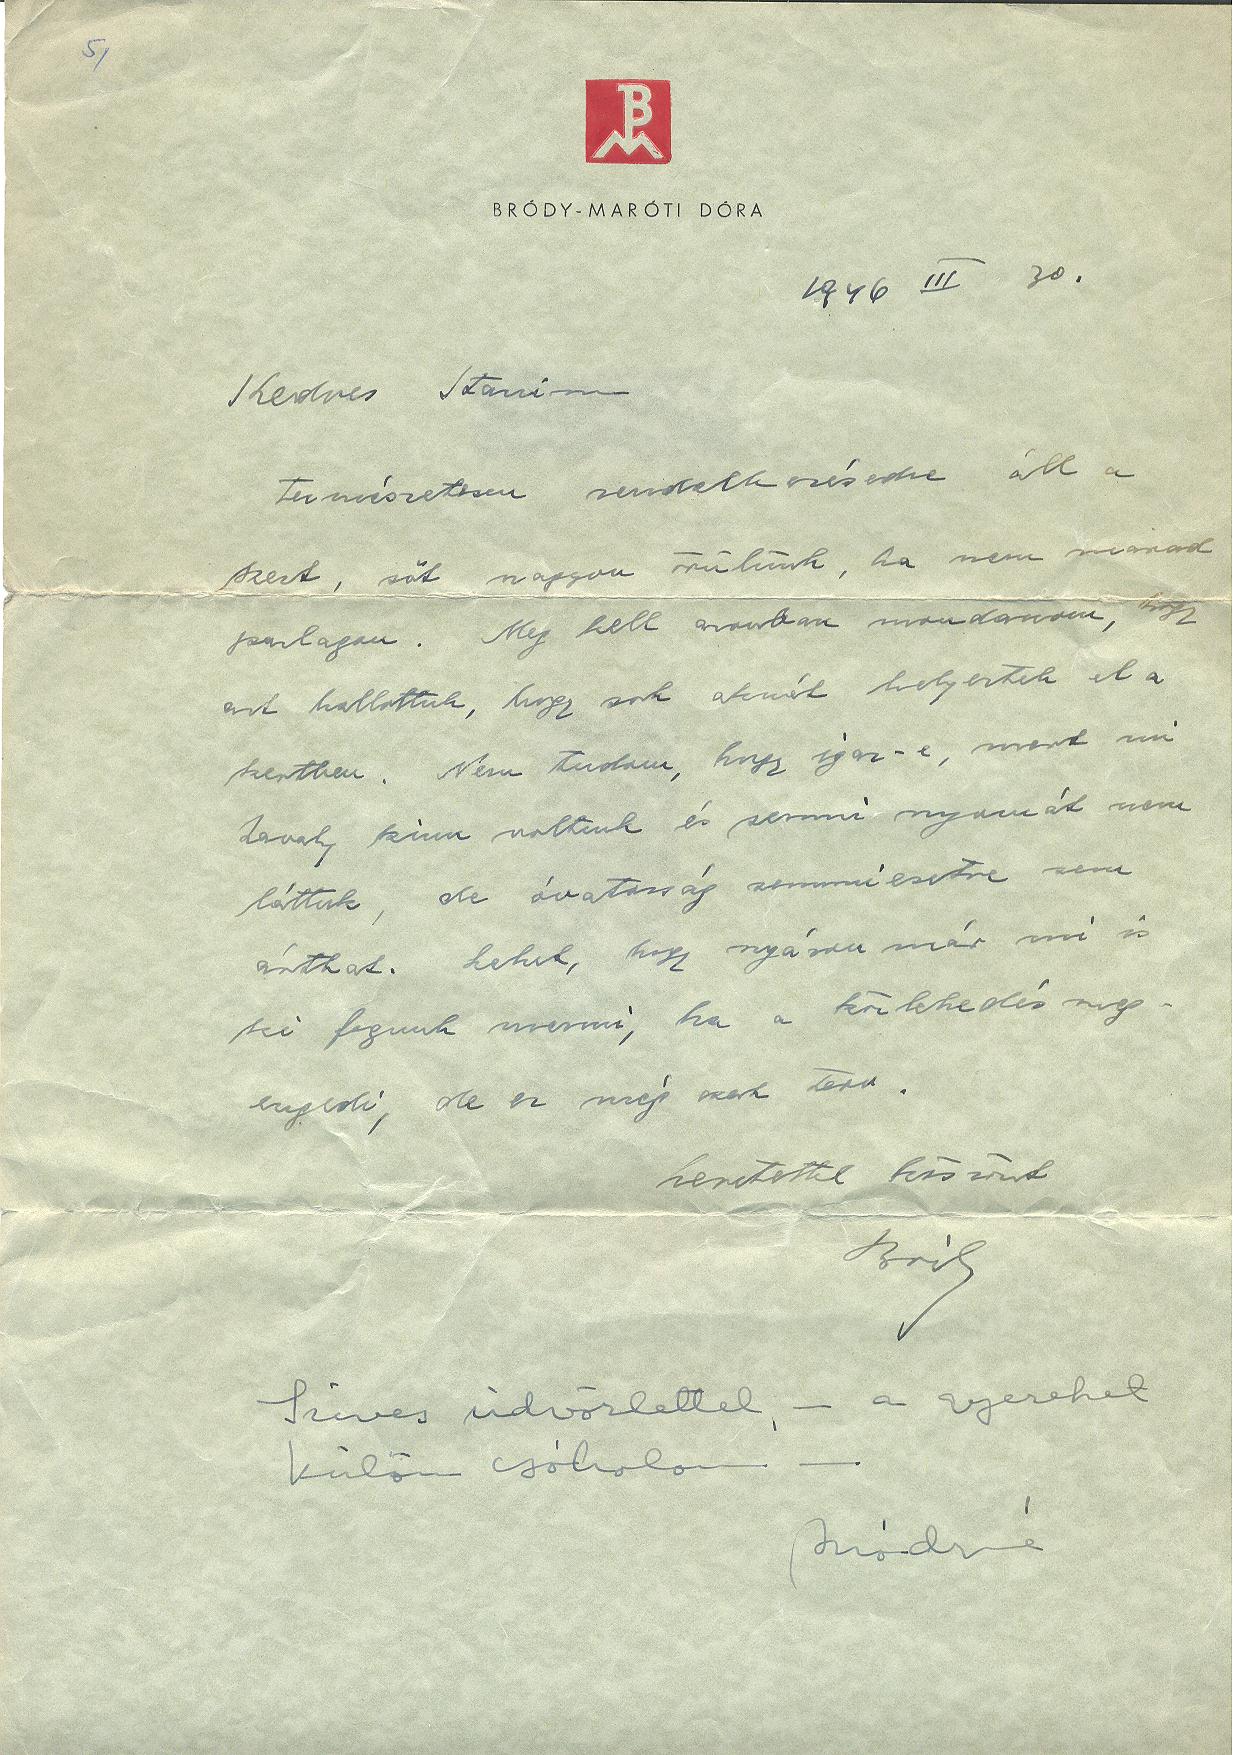 5/
BM
BRÓDY-MARÓTI DÓRA
1946 III 30.
Kedves
Természetesen rendelkezésedre áll a
kert, sőt nagyon örülünk, ha nem marad
parlagon. Meg kell azonban mondanom, hogy
azt hallottuk, hogy sok aknát helyeztek el a
kertben. Nem tudom, hogy igaz-e, mert mi
tavaly kinn voltunk és semmi nyomát nem
láttuk, de óvatosság semmiesetre sem
árthat. Lehet, hogy nyáron már mi is
ki fogunk menni, ha a közlekedés meg-
engedi, de ez még csak terv.
szeretettel köszönt
Szives üdvözlettel, — a gyereket
külön csókolom —